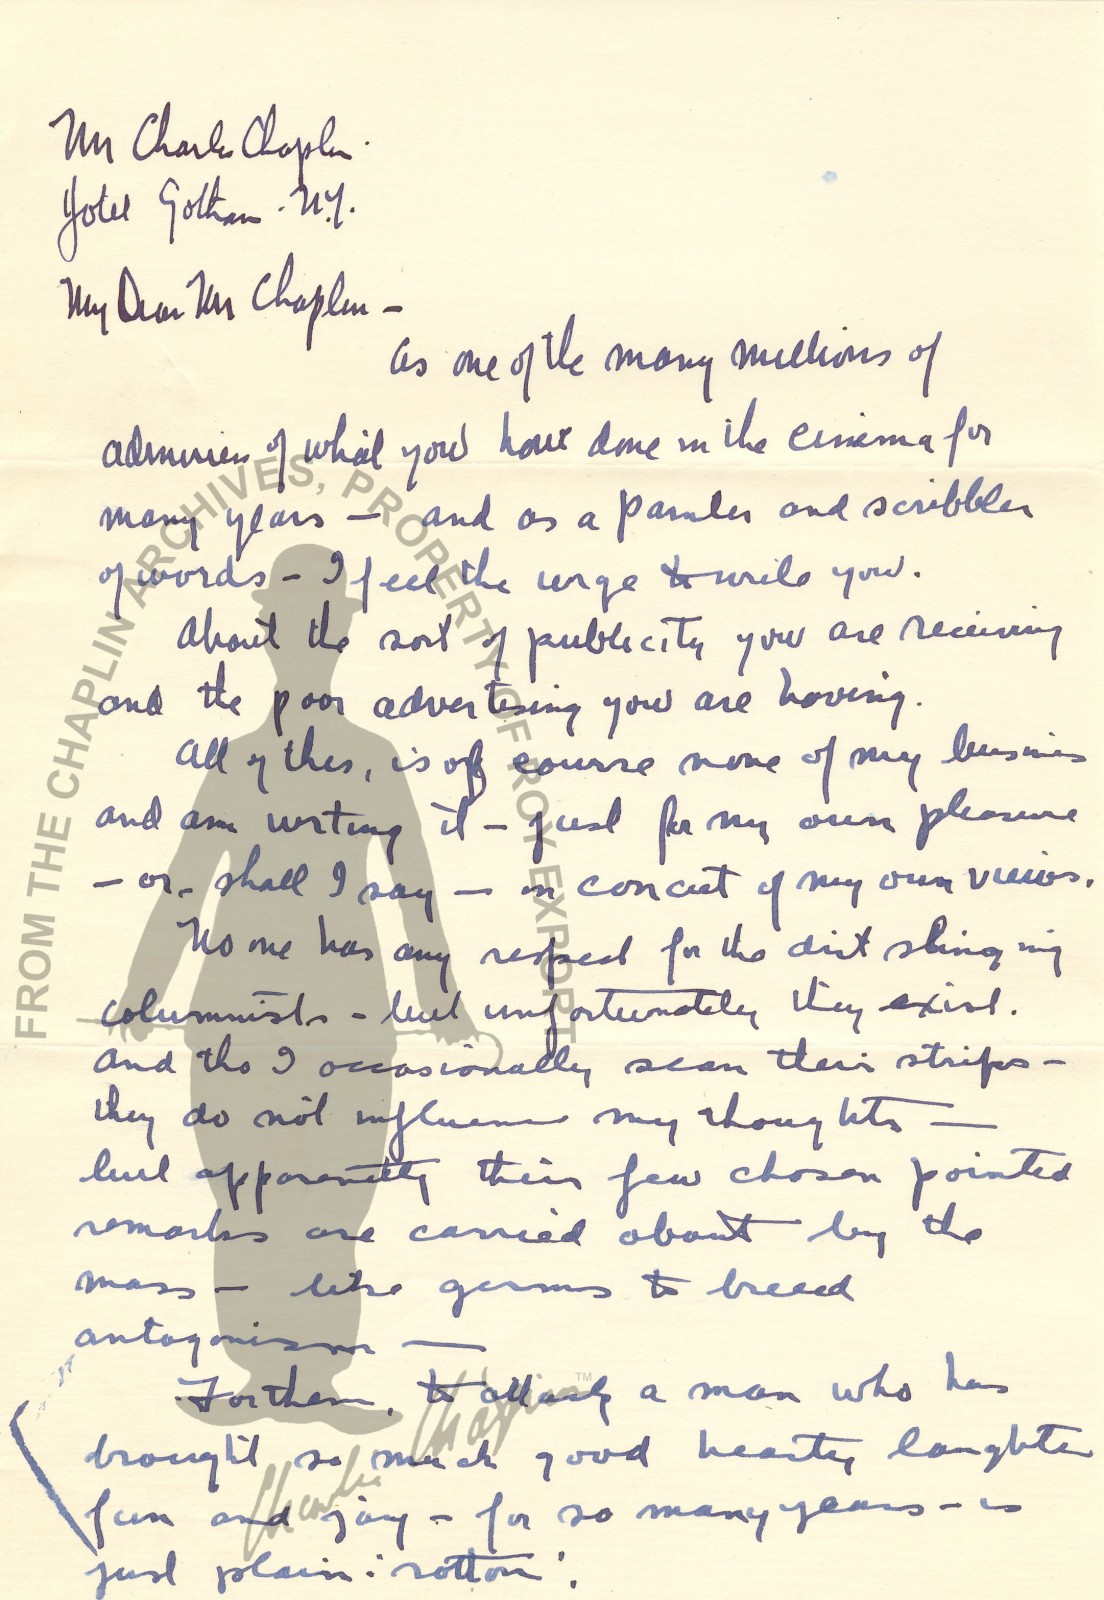 Mr Charles Chaplin.
Hotel Gotham. N.Y.
My Dear Mr Chaplin —
As one of the many millions of
admirers of what you have done in the cinema for
many years — and as a painter and scribbler
of words — I feel the urge to write you.
About the sort of publicity you are receiving
and the poor advertising you are having.
All of this, is of course none of my business
and am writing it — just for my own pleasure
— or — shall I say — in conceit of my own views.
No one has any respect for the dirt slinging
columnists — but unfortunately they exist.
And tho I occasionally scan their strips —
they do not influence my thoughts —
but apparently their few chosen pointed
remarks are carried about by the
mass — like germs to breed
antagonism —
For them, to attack a man who has
brought so much good hearty laughter
fun and joy — for so many years — is
just plain 'rotten'.
FROM THE CHAPLIN ARCHIVES, PROPERTY OF ROY EXPORT
Charlie Chaplin™